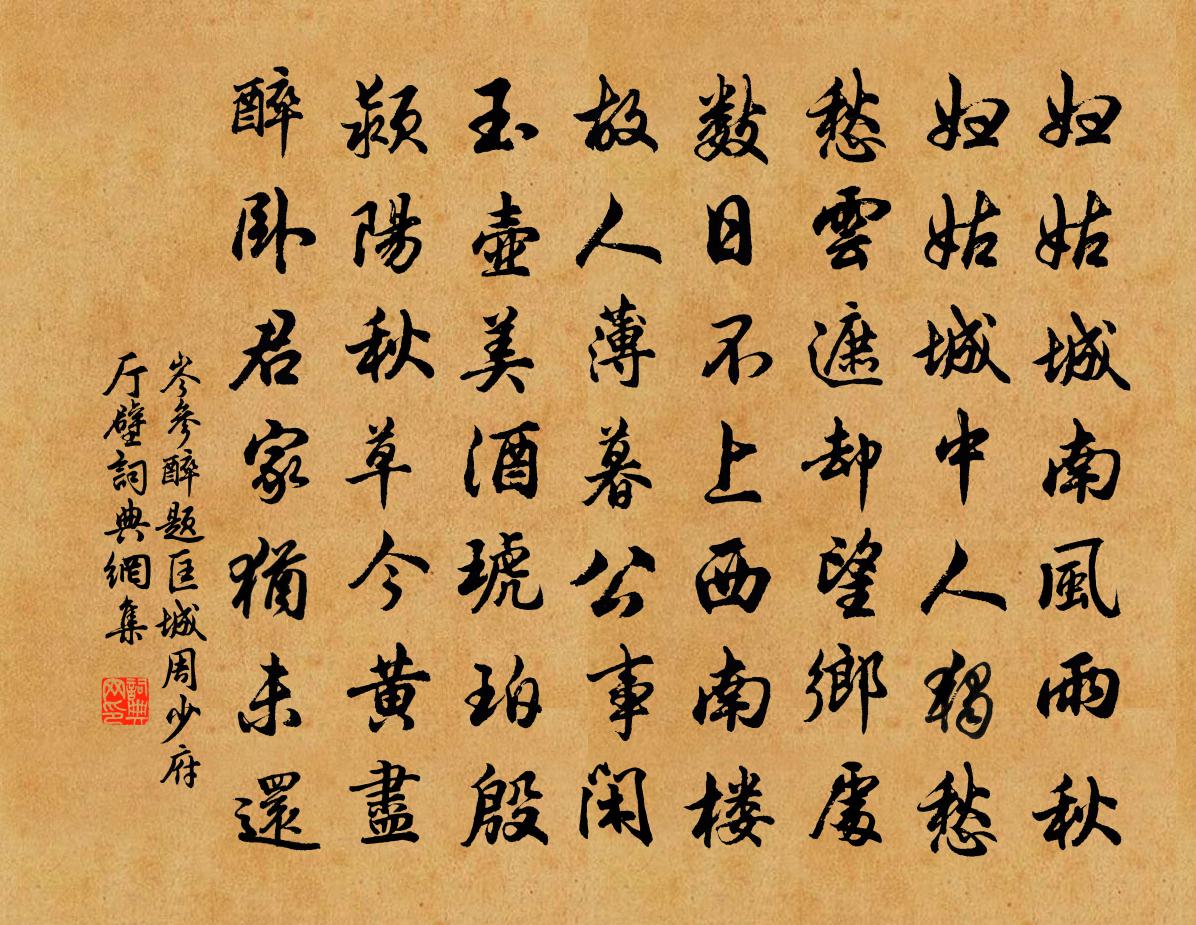 妇姑城南風雨秋
妇姑城中人獨愁
愁雲遮却望鄉處
数日不上西南楼
故人薄暮公事闲
玉壺美酒琥珀殷
颍陽秋草今黄盡
醉卧君家猶未還
岑參醉题匡城周少府
厅壁詞典網集
詞典網印